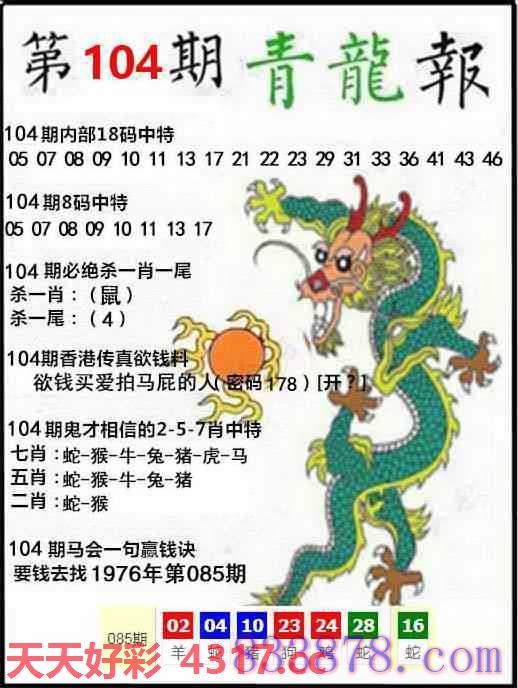 第104期 青龍報
104期内部18码中特
05 07 08 09 10 11 13 17 21 22 23 29 31 33 36 41 43 46
104期8码中特
05 07 08 09 10 11 13 17
104期必绝杀一肖一尾
杀一肖：（鼠）
杀一尾：（4）
104期香港传真欲钱料
欲钱买爱拍马屁的人(密码178)[开？]
104期鬼才相信的2-5-7肖中特
七肖：蛇-猴-牛-兔-猪-虎-马
五肖：蛇-猴-牛-兔-猪
二肖：蛇-猴
104期马会一句赢钱诀
要钱去找1976年第085期
085期 02 04 10 23 24 28 16
羊 蛇 猪 狗 鸡 蛇 蛇
天天好彩 4317.cc
838878.com